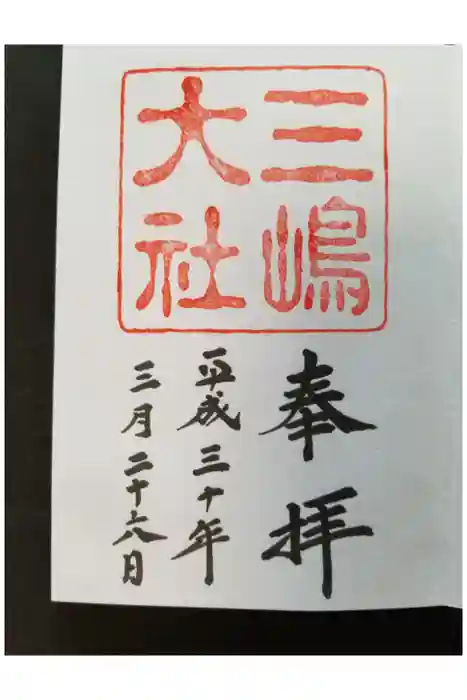 三嶋
大社
奉拝
平成三十年
三月二十六日